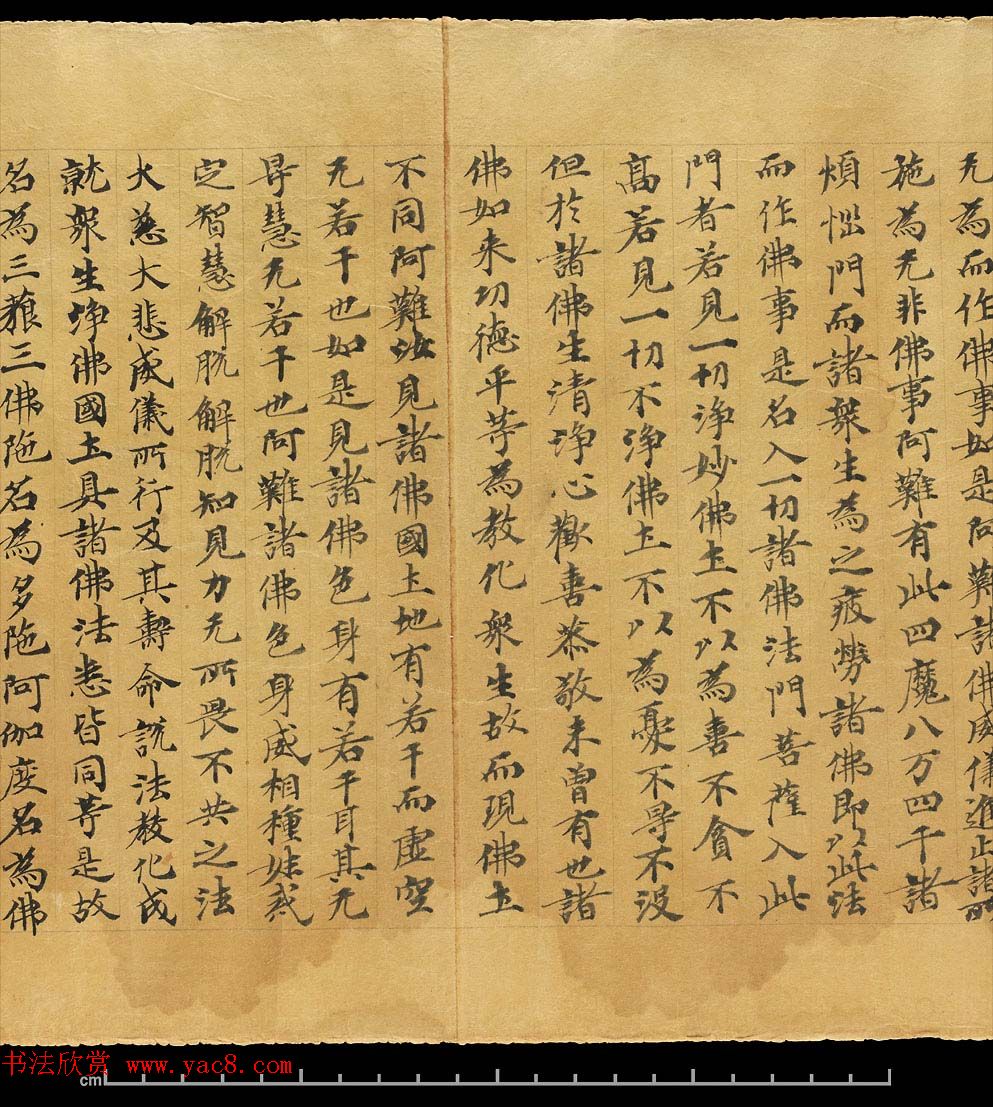 无為而作佛事如是阿難諸佛威儀進止諸所
施為无非佛事阿難有此四魔八万四千諸
煩惱門而諸衆生為之疲勞諸佛即以此法
而作佛事是名入一切諸佛法門菩薩入此
門者若見一切淨妙佛土不以為喜不貪不
高若見一切不淨佛土不以為憂不㝵不没
但於諸佛生清淨心歡喜恭敬未曾有也諸
佛如来功德平等為教化衆生故而現佛土
不同阿難汝見諸佛國土地有若干而虛空
无若干也如是見諸佛色身有若干耳其无
㝵慧无若干也阿難諸佛色身威相種姓戒
定智慧解脱解脱知見力无所畏不共之法
大慈大悲威儀所行及其壽命說法教化成
就衆生淨佛國土具諸佛法悉皆同等是故
名為三藐三佛陁名為多陁阿伽度名為佛
书法欣赏 www.yac8.com
cm